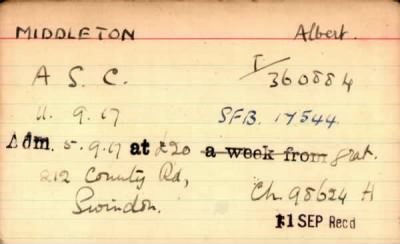 MIDDLETON Albert.
A S. C. T/360884
11. 9. 17 SFB. 17544.
Adm. 5.9.17 at £20 a week from grat.
212 County Rd, Ch 98624 H
Swindon.
11 SEP Recd